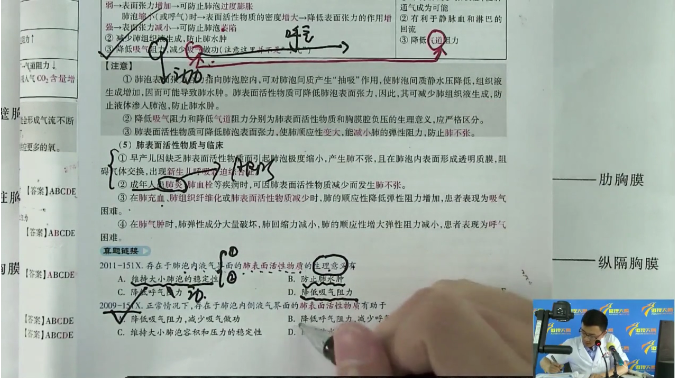 弱→表面张力增加→可防止肺泡过度膨胀
肺泡缩小(或呼气)时→表面活性物质的密度增大→降低表面张力的作用增
强→表面张力减小→可防止肺泡萎陷
② 减少肺组织液生成,防止肺水肿
③ 降低吸气阻力,减少吸气做功
道气成为可能
② 有利于静脉血和淋巴的
回流
③ 降低气道阻力
【注意】
指向肺泡腔内,可对肺泡间质产生“抽吸”作用,使肺泡间质静水压降低,组织液
生成增加,因而可能导致肺水肿。肺表面活性物质可降低肺泡表面张力,因此,其可减少肺组织液生成,防
止液体渗入肺泡,防止肺水肿。
② 降低吸气阻力和降低气道阻力分别为肺表面活性物质和胸膜腔负压的生理意义,应严格区分。
③ 肺表面活性物质可降低肺泡表面张力,使肺顺应性变大,能减小肺的弹性阻力,防止肺不张。
(5) 肺表面活性物质与临床
① 早产儿因缺乏肺表面活性物质而引起肺泡极度缩小,产生肺不张,且在肺泡内表面形成透明质膜,阻
碍气体交换,出现新生儿呼吸窘迫综合征
② 成年人患肺炎、肺血栓等疾病时,可因肺表面活性物质减少而发生肺不张。
③ 在肺充血、肺组织纤维化或肺表面活性物质减少时,肺的顺应性降低弹性阻力增加,患者表现为吸气
困难。
④ 在肺气肿时,肺弹性成分大量破坏,肺回缩力减小,肺的顺应性增大弹性阻力减小,患者表现为呼气
困难。
真题链接
2011-151X.存在于肺泡内液气界面的肺表面活性物质的生理意义有
A. 维持大小肺泡的稳定性
B. 防止肺水肿
C. 降低呼气阻力
D. 降低吸气阻力
2009-151X.正常情况下,存在于肺泡内侧液气界面的肺表面活性物质有助于
A. 降低吸气阻力,减少吸气做功
B. 降低呼气阻力,减少呼气
C. 维持大小肺泡容积和压力的稳定性
D.
气阻力↓
人气CO₂含量增
会形成气流不断
更多的氧。
【答案】ABCDE
【答案】ABCDE
【答案】ABCDE
【答案】ABCDE
【答案】ABCDE
肋胸膜
纵隔胸膜